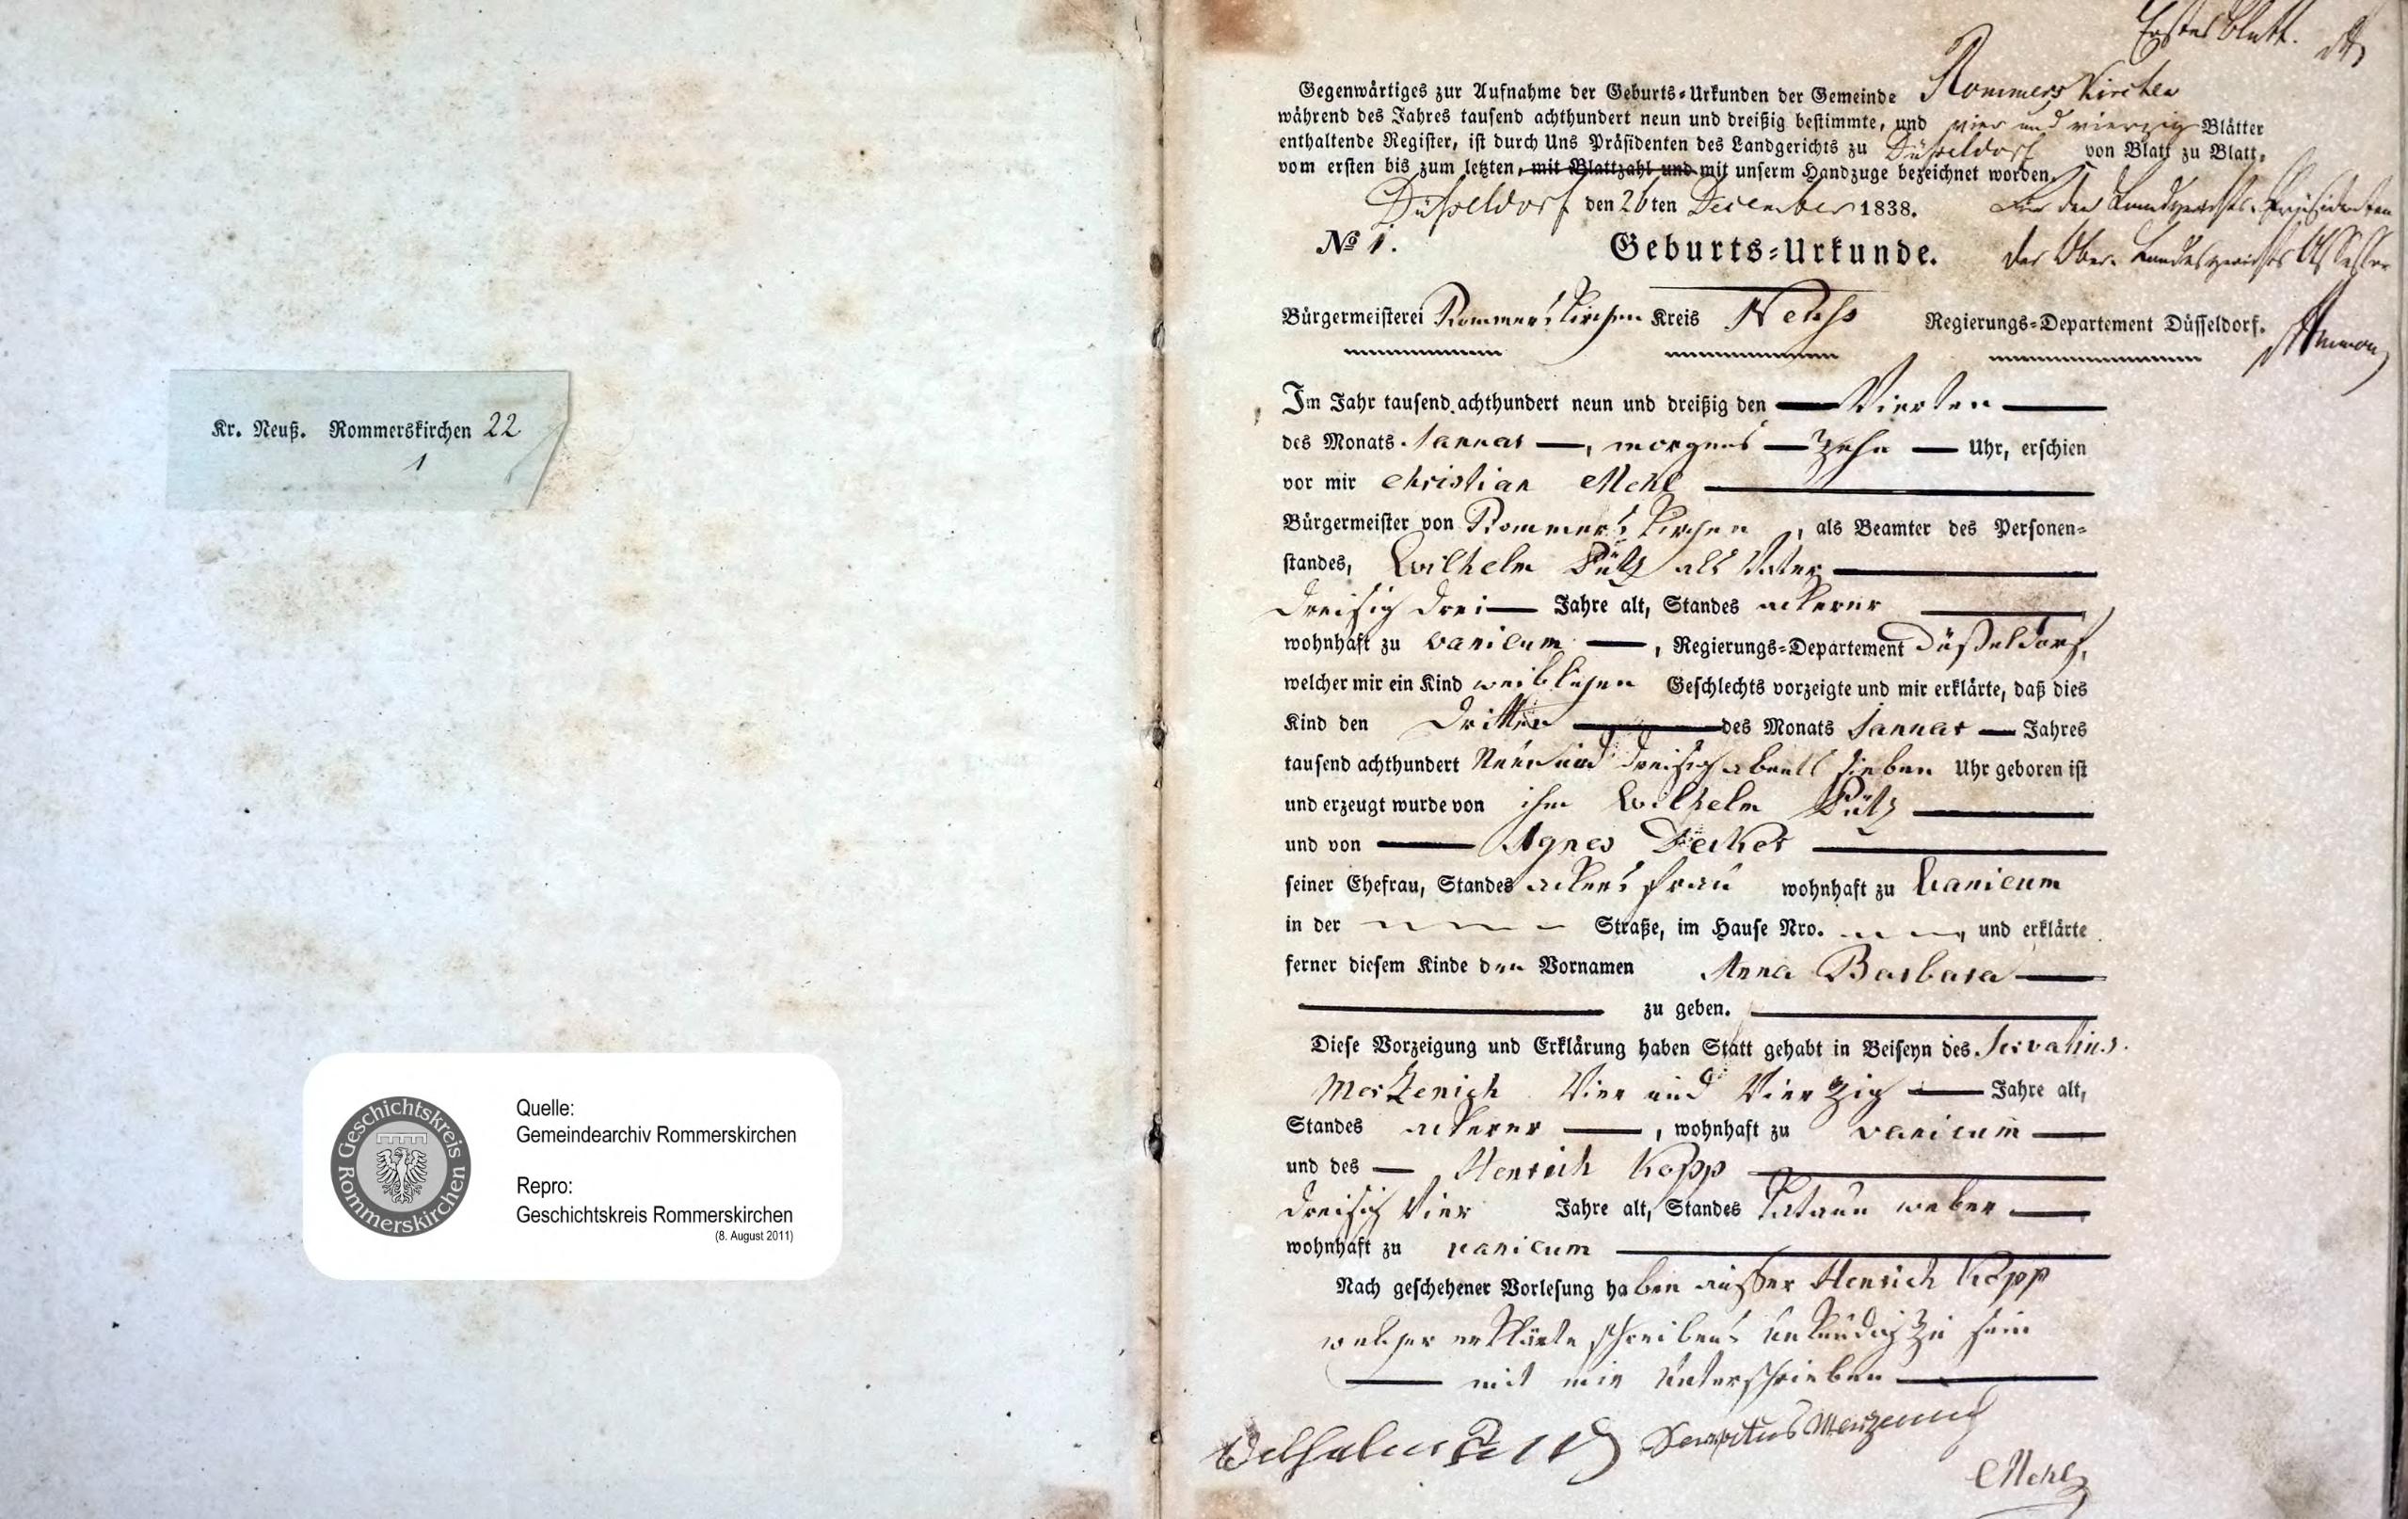 Kr. Neuß. Rommerskirchen 22
1
Geschichtskreis Rommerskirchen
Quelle:
Gemeindearchiv Rommerskirchen
Repro:
Geschichtskreis Rommerskirchen
(8. August 2011)
Erstes Blatt.
Gegenwärtiges zur Aufnahme der Geburts-Urkunden der Gemeinde Rommerskirchen
während des Jahres tausend achthundert neun und dreißig bestimmte, und vier und vierzig Blätter
enthaltende Register, ist durch Uns Präsidenten des Landgerichts zu Düsseldorf von Blatt zu Blatt,
vom ersten bis zum letzten, mit Blattzahl und mit unserm Handzuge bezeichnet worden.
Düsseldorf den 26ten December 1838. Für den Landgerichts-Präsidenten
No 1. Geburts-Urkunde. Der Ober-Landesgerichts Assessor
Bürgermeisterei Rommerskirchen Kreis Neuss Regierungs-Departement Düsseldorf.
Im Jahr tausend achthundert neun und dreißig den Vierten
des Monats Januar, morgens zehn Uhr, erschien
vor mir Christian Mehl
Bürgermeister von Rommerskirchen, als Beamter des Personen-
standes, Wilhelm Pütz als Vater
dreisig drei Jahre alt, Standes ackerer
wohnhaft zu vanicum, Regierungs-Departement Düßeldorf,
welcher mir ein Kind weiblichen Geschlechts vorzeigte und mir erklärte, daß dies
Kind den dritten des Monats Januar Jahres
tausend achthundert Neun und dreisig abends sieben Uhr geboren ist
und erzeugt wurde von ihm Wilhelm Pütz
und von Agnes Decker
seiner Ehefrau, Standes ackersfrau wohnhaft zu Vanicum
in der Straße, im Hause Nro. und erklärte
ferner diesem Kinde den Vornamen Anna Barbara
zu geben.
Diese Vorzeigung und Erklärung haben Statt gehabt in Beiseyn des Servatius
Merzenich Vier und Vierzig Jahre alt,
Standes ackerer, wohnhaft zu vanicum
und des Henrich Kopp
dreisig Vier Jahre alt, Standes weber
wohnhaft zu vanicum
Nach geschehener Vorlesung haben außer Henrich Kopp
welcher erklärte schreibens unkundig zu sein
mit mir unterschrieben
Wilhelm Pütz Servatius Merzenich
Mehl